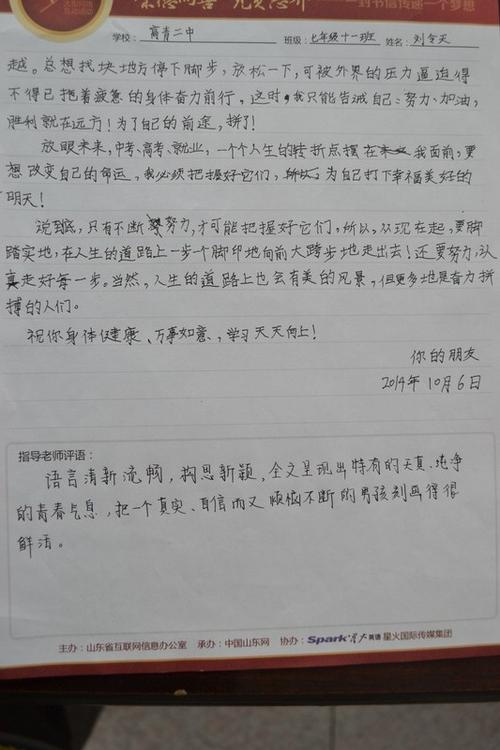 一封书信传递一个梦想
学校：高青二中 班级：七年级十一班 姓名：刘令天
越。总想找块地方停下脚步，放松一下，可被外界的压力逼迫得
不得已拖着疲惫的身体奋力前行，这时，我只能告诫自己：努力、加油，
胜利就在远方！为了自己的前途，拼了！
放眼未来，中考、高考、就业，一个个人生的转折点摆在我面前，要
想改变自己的命运，我必须把握好它们，为自己打下幸福美好的
明天！
说到底，只有不断努力，才可能把握好它们，所以，从现在起，要脚
踏实地，在人生的道路上一步一个脚印地向前大跨步地走出去！还要努力，认
真走好每一步。当然，人生的道路上也会有美的风景，但更多地是奋力拼
搏的人们。
祝你身体健康、万事如意、学习天天向上！
你的朋友
2014年10月6日
指导老师评语：
语言清新流畅，构思新颖，全文呈现出特有的天真、纯净
的青春气息，把一个真实、自信而又烦恼不断的男孩刻画得很
鲜活。
主办：山东省互联网信息办公室 承办：中国山东网 协办：Spark星火英语 星火国际传媒集团